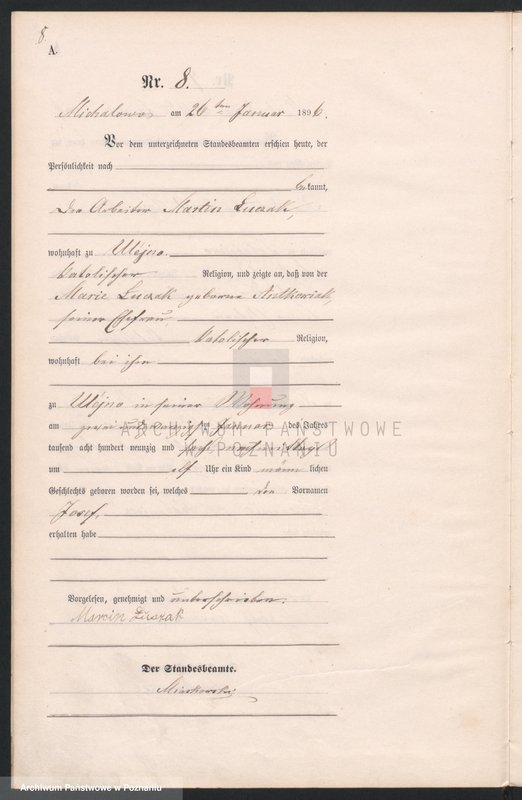 8.
A.
Nr. 8.
Michalowo am 26 ten Januar 1896.
Vor dem unterzeichneten Standesbeamten erschien heute, der
Persönlichkeit nach
bekannt,
Der Arbeiter Martin Luczak,
wohnhaft zu Ulejno.
katolischer Religion, und zeigte an, daß von der
Marie Luczak geborene Antkowiak,
seiner Ehefrau
katolischer Religion,
wohnhaft bei ihm
zu Ulejno in seiner Wohnung
am zwei und zwanzigsten Januar des Jahres
tausend acht hundert neunzig und sechs
um elf Uhr ein Kind männlichen
Geschlechts geboren worden sei, welches den Vornamen
Josef,
erhalten habe
Vorgelesen, genehmigt und unterschrieben.
Marcin Luczak
Der Standesbeamte.
ARCHIWUM PAŃSTWOWE
W POZNANIU
Archiwum Państwowe w Poznaniu